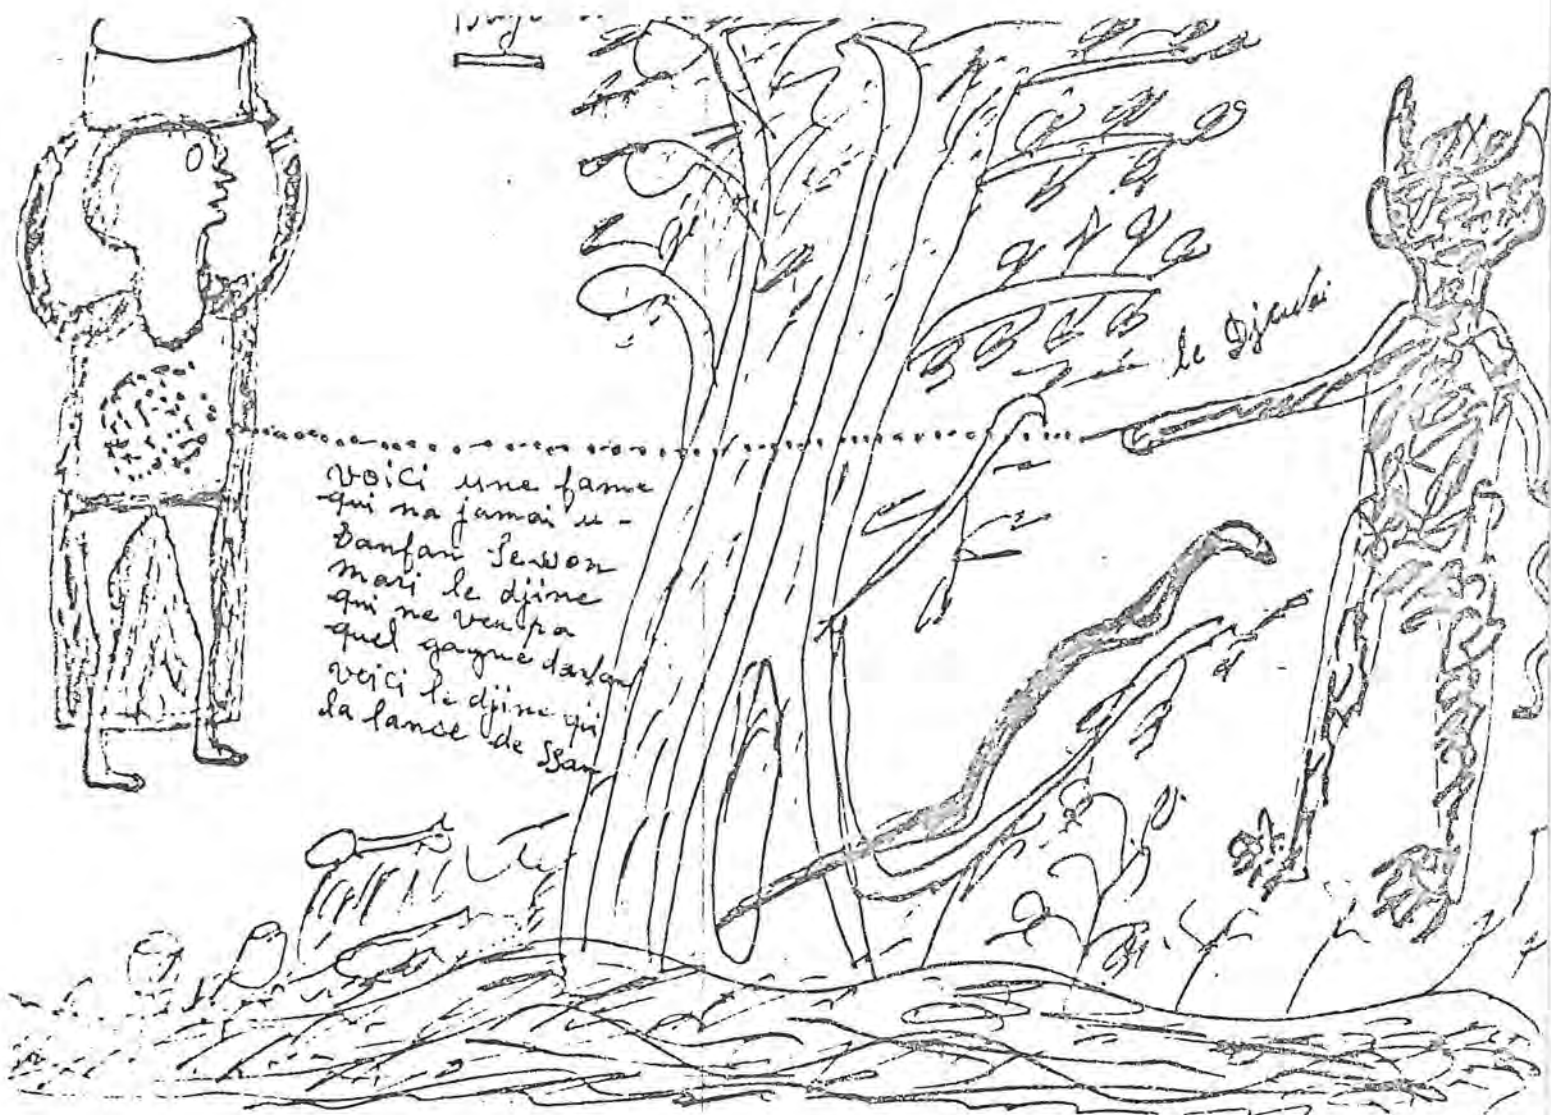 le Djeudi
voici une fame
qui na jamai u-
Danfan Sesson
mari le djine
qui ne veu pa
quel gagne danfan
voici le djine qui
la lance de Ssan